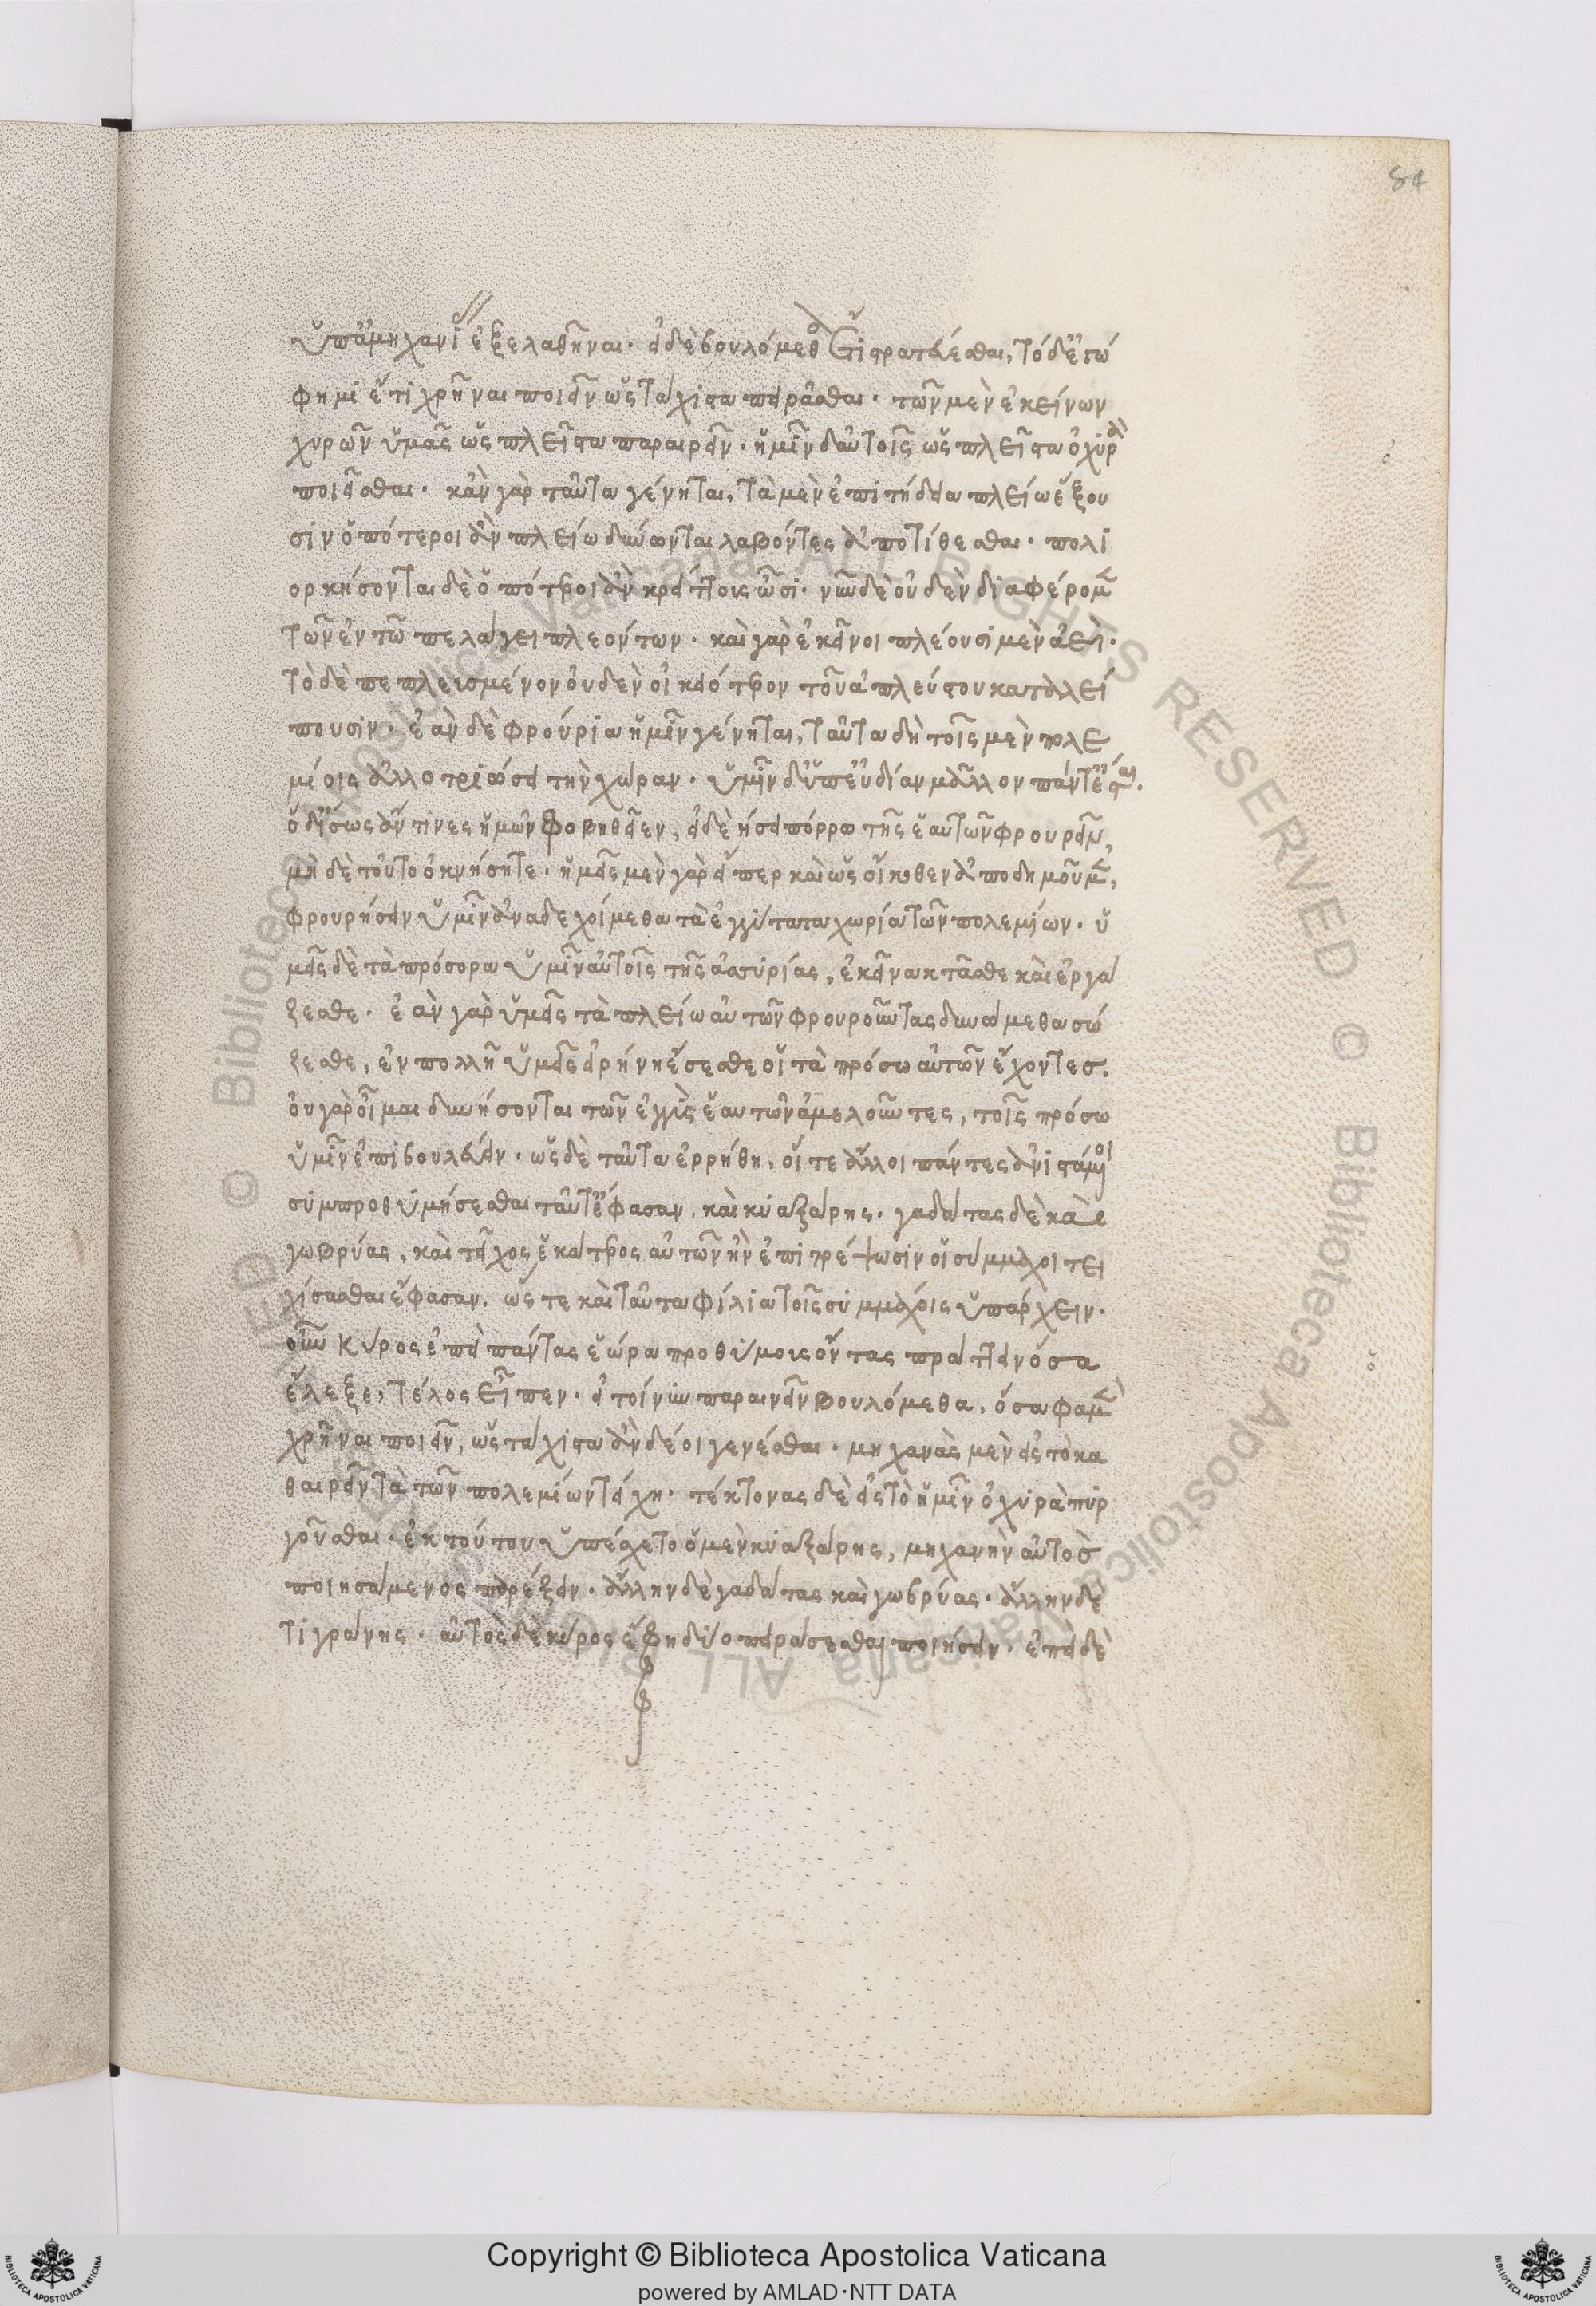 84
ὑπ' ἀμηχανί ἐξελαθῆναι. εἰ δὲ βουλόμεθα ἔτι στρατεύεσθαι, τόδ' ἐγώ
φημι ἔτι χρῆναι ποιεῖν ὡς τάχιστα πειρᾶσθαι. τῶν μὲν ἐκείνων
χυρῶν ὑμᾶς ὡς πλεῖστα παραιρεῖν. ἡμῖν δ' αὐτοῖς ὡς πλεῖστα ὀχυρὰ
ποιεῖσθαι. κἂν γὰρ ταῦτα γένηται, τὰ μὲν ἐπιτήδεια πλείω ἕξου
σιν ὁπότεροι ἂν πλείω δύνωνται λαβόντες ἀποτίθεσθαι. πολι
ορκήσονται δὲ ὁπότεροι ἂν κρείττους ὦσι. νῦν δὲ οὐδὲν διαφέρομεν
τῶν ἐν τῷ πελάγει πλεόντων. καὶ γὰρ ἐκεῖνοι πλέουσι μὲν ἀεί.
τὸ δὲ πεπλευσμένον οὐδὲν οἰκειότερον τοῦ ἀπλεύστου καταλεί
πουσιν. ἐὰν δὲ φρούρια ἡμῖν γένηται, ταῦτα δὴ τοῖς μὲν πολε
μίοις ἀλλοτριώσει τὴν χώραν. ὑμῖν δ' ὑπ' εὐδίαν μᾶλλον πάντ' ἔσται.
ὃ δ' ἴσως ἄν τινες ἡμῶν φοβηθεῖεν, εἰ δεήσει πόρρω τῆς ἑαυτῶν φρουρεῖν,
μηδὲ τοῦτο ὀκνήσητε. ἡμεῖς μὲν γὰρ ἅπερ καὶ ὡς οἴκοθεν ἀποδημοῦμεν,
φρουρήσειν ὑμῖν ἀναδεχοίμεθα τὰ ἐγγύτατα χωρία τῶν πολεμίων. ὑ
μεῖς δὲ τὰ πρόσορα ὑμῖν αὐτοῖς τῆς ἀσυρίας, ἐκεῖνα κτᾶσθε καὶ ἐργά
ζεσθε. ἐὰν γὰρ ὑμεῖς τὰ πλείω αὐτῶν φρουροῦντας δυνώμεθα σώ
ζεσθε, ἐν πολλῇ ὑμεῖς εἰρήνῃ ἔσεσθε οἱ τὰ πρόσω αὐτῶν ἔχοντες.
οὐ γὰρ οἶμαι δυνήσονται τῶν ἐγγὺς ἑαυτῶν ἀμελοῦντες, τοῖς πρόσω
ὑμῖν ἐπιβουλεύειν. ὡς δὲ ταῦτα ἐρρήθη, οἵ τε ἄλλοι πάντες ἀνιστάμενοι
συμπροθυμήσεσθαι ταῦτ' ἔφασαν, καὶ κυαξάρης. γαδάτας δὲ καὶ
γωβρύας, καὶ τεῖχος ἑκάτερος αὐτῶν ἢν ἐπιτρέψωσιν οἱ σύμμαχοι τει
χίσασθαι ἔφασαν. ὥστε καὶ ταῦτα φίλια τοῖς συμμάχοις ὑπάρχειν.
οὖν κῦρος ἐπεὶ πάντας ἑώρα προθύμους ὄντας πράττειν ὅσα
ἔλεξε, τέλος εἶπεν. εἰ τοίνυν παραινεῖν βουλόμεθα, ὅσα φαμὲν
χρῆναι ποιεῖν, ὡς τάχιστα ἂν δέοι γενέσθαι. μηχανὰς μὲν εἰς τὸ κα
θαιρεῖν τὰ τῶν πολεμίων τείχη. τέκτονας δὲ εἰς τὸ ἡμῖν ὀχυρὰ πυρ
γοῦσθαι. ἐκ τούτου ὑπέσχετο ὁ μὲν κυαξάρης, μηχανὴν αὐτὸς
ποιησάμενος παρέξειν. ἄλλην δὲ γαδάτας καὶ γωβρύας. ἄλλην δὲ
τιγράνης. αὐτὸς δὲ κῦρος ἔφη δύο πειράσεσθαι ποιήσειν. ἐπεὶ δὲ
Copyright © Biblioteca Apostolica Vaticana
powered by AMLAD·NTT DATA